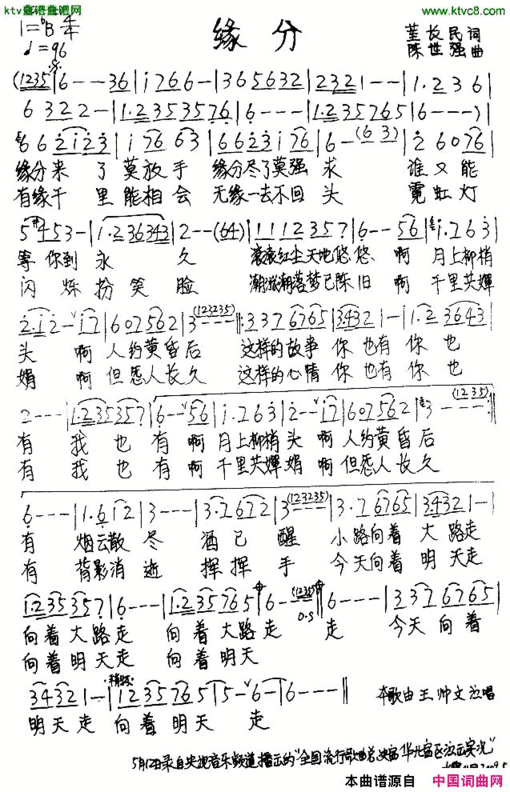 ktv歌谱曲谱网
www.ktvc8.com
1=♭B 4/4
♩=96
缘分
董长民 词
陈世强 曲
(1235|6--36|i766-|365632|2321--|1.236|
6322-|1.2353576|6---|1.2353765|6---)
662i23|i7663|6623i76|6--(63)|26076|
缘分来 了莫放手 缘分尽了莫强求 谁又能
有缘千 里能相会 无缘一去不回头 霓虹灯
5#453-|1.236343|2--(64)|1112357|6--56|i.763|
等你到永 久 滚滚红尘天地悠悠 啊 月上柳梢
闪烁扮笑脸 潮涨潮落梦已陈旧 啊 千里共婵
2i2-i7|607562|3---(123235)‖:3376765|3432i-|1.23643|
头 啊 人约黄昏后 这样的故事 你也有你也
娟 啊 但愿人长久 这样的心情 你也有你也
2---|12353357|6--56|i.763|2--i7|607562|3---(1235):‖
有 我也有 啊 月上柳梢头 啊 人约黄昏后
有 我也有 啊 千里共婵娟 啊 但愿人长久
6---|1.612|3---|3.7672|3---(123235)|3.76765|34321-|
有 烟云散尽 酒已醒 小路向着大路走
有 背影消逝 挥挥手 今天向着明天走
1235357|6---|1.235765|6---‖6---|3376765|
D.S
向着大路走 向着大路走 走 今天向着
向着明天走 向着明天
34321-|1235765|5-6-|6---‖
明天走 向着明天 走
本歌由王帅文演唱
5月12日录自央视音乐频道播示的"全国流行歌曲总决赛华北赛区演出实况"
本曲谱源自 中国词曲网